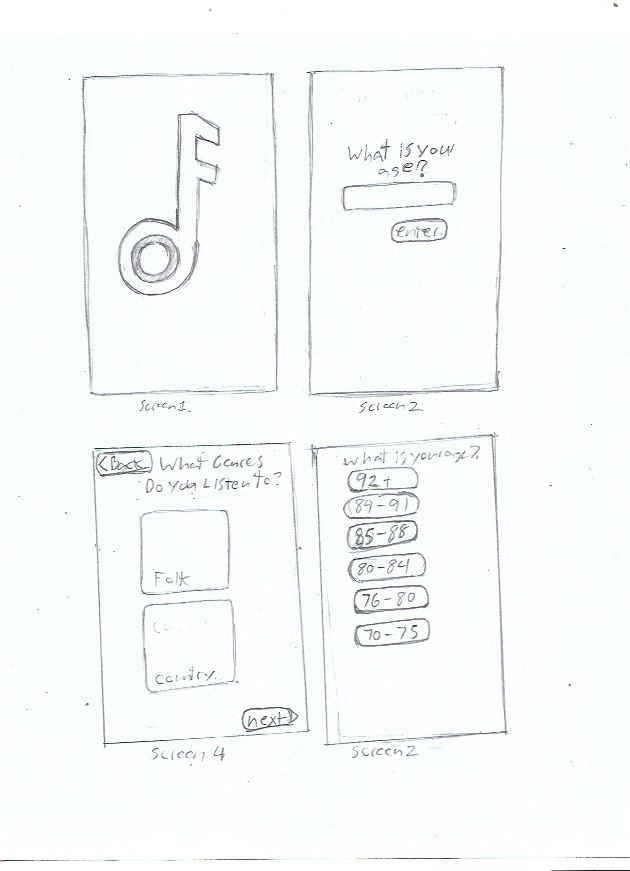 Screen 1.
What is your
age?
enter.
Screen 2.
<Back
What Genres
Do you Listen to?
Folk
Country.
next
Screen 4
What is your age?
92+
89-91
85-88
80-84
76-80
70-75
Screen 2